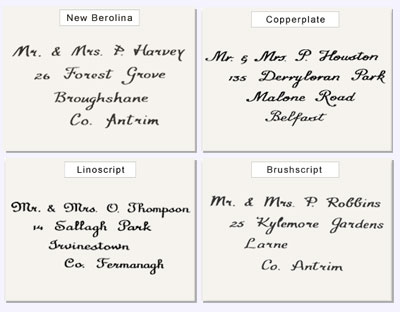 New Berolina
Mr. & Mrs. P. Harvey
26 Forest Grove
Broughshane
Co. Antrim
Copperplate
Mr. & Mrs. P. Houston
135 Derryloran Park
Malone Road
Belfast
Linoscript
Mr. & Mrs. O. Thompson
14 Sallagh Park
Irvinestown
Co. Fermanagh
Brushscript
Mr. & Mrs. P. Robbins
25 Kylemore Gardens
Larne
Co. Antrim